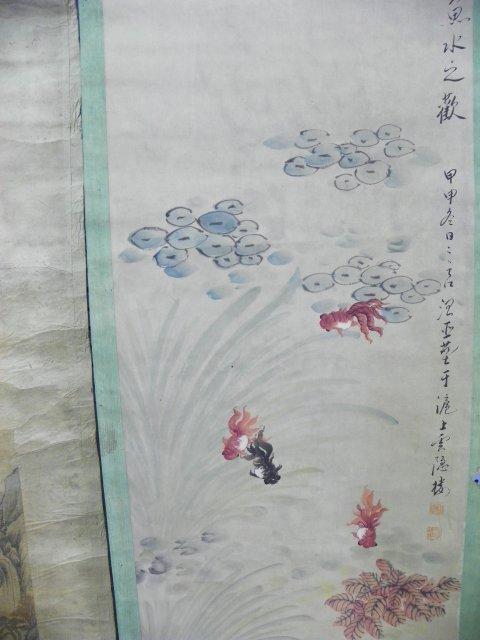 魚水之歡
甲申冬日之吉 亞芬于滬上雲隱樓